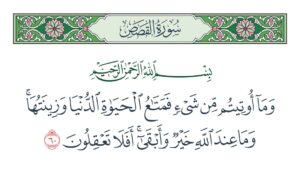 سُورَةُ القَصَصِ
بِسْمِ ٱللَّهِ ٱلرَّحْمَٰنِ ٱلرَّحِيمِ
وَمَآ أُوتِيتُم مِّن شَىْءٍ فَمَتَٰعُ ٱلْحَيَوٰةِ ٱلدُّنْيَا وَزِينَتُهَا ۚ
وَمَا عِندَ ٱللَّهِ خَيْرٌ وَأَبْقَىٰٓ ۚ أَفَلَا تَعْقِلُونَ ٦٠